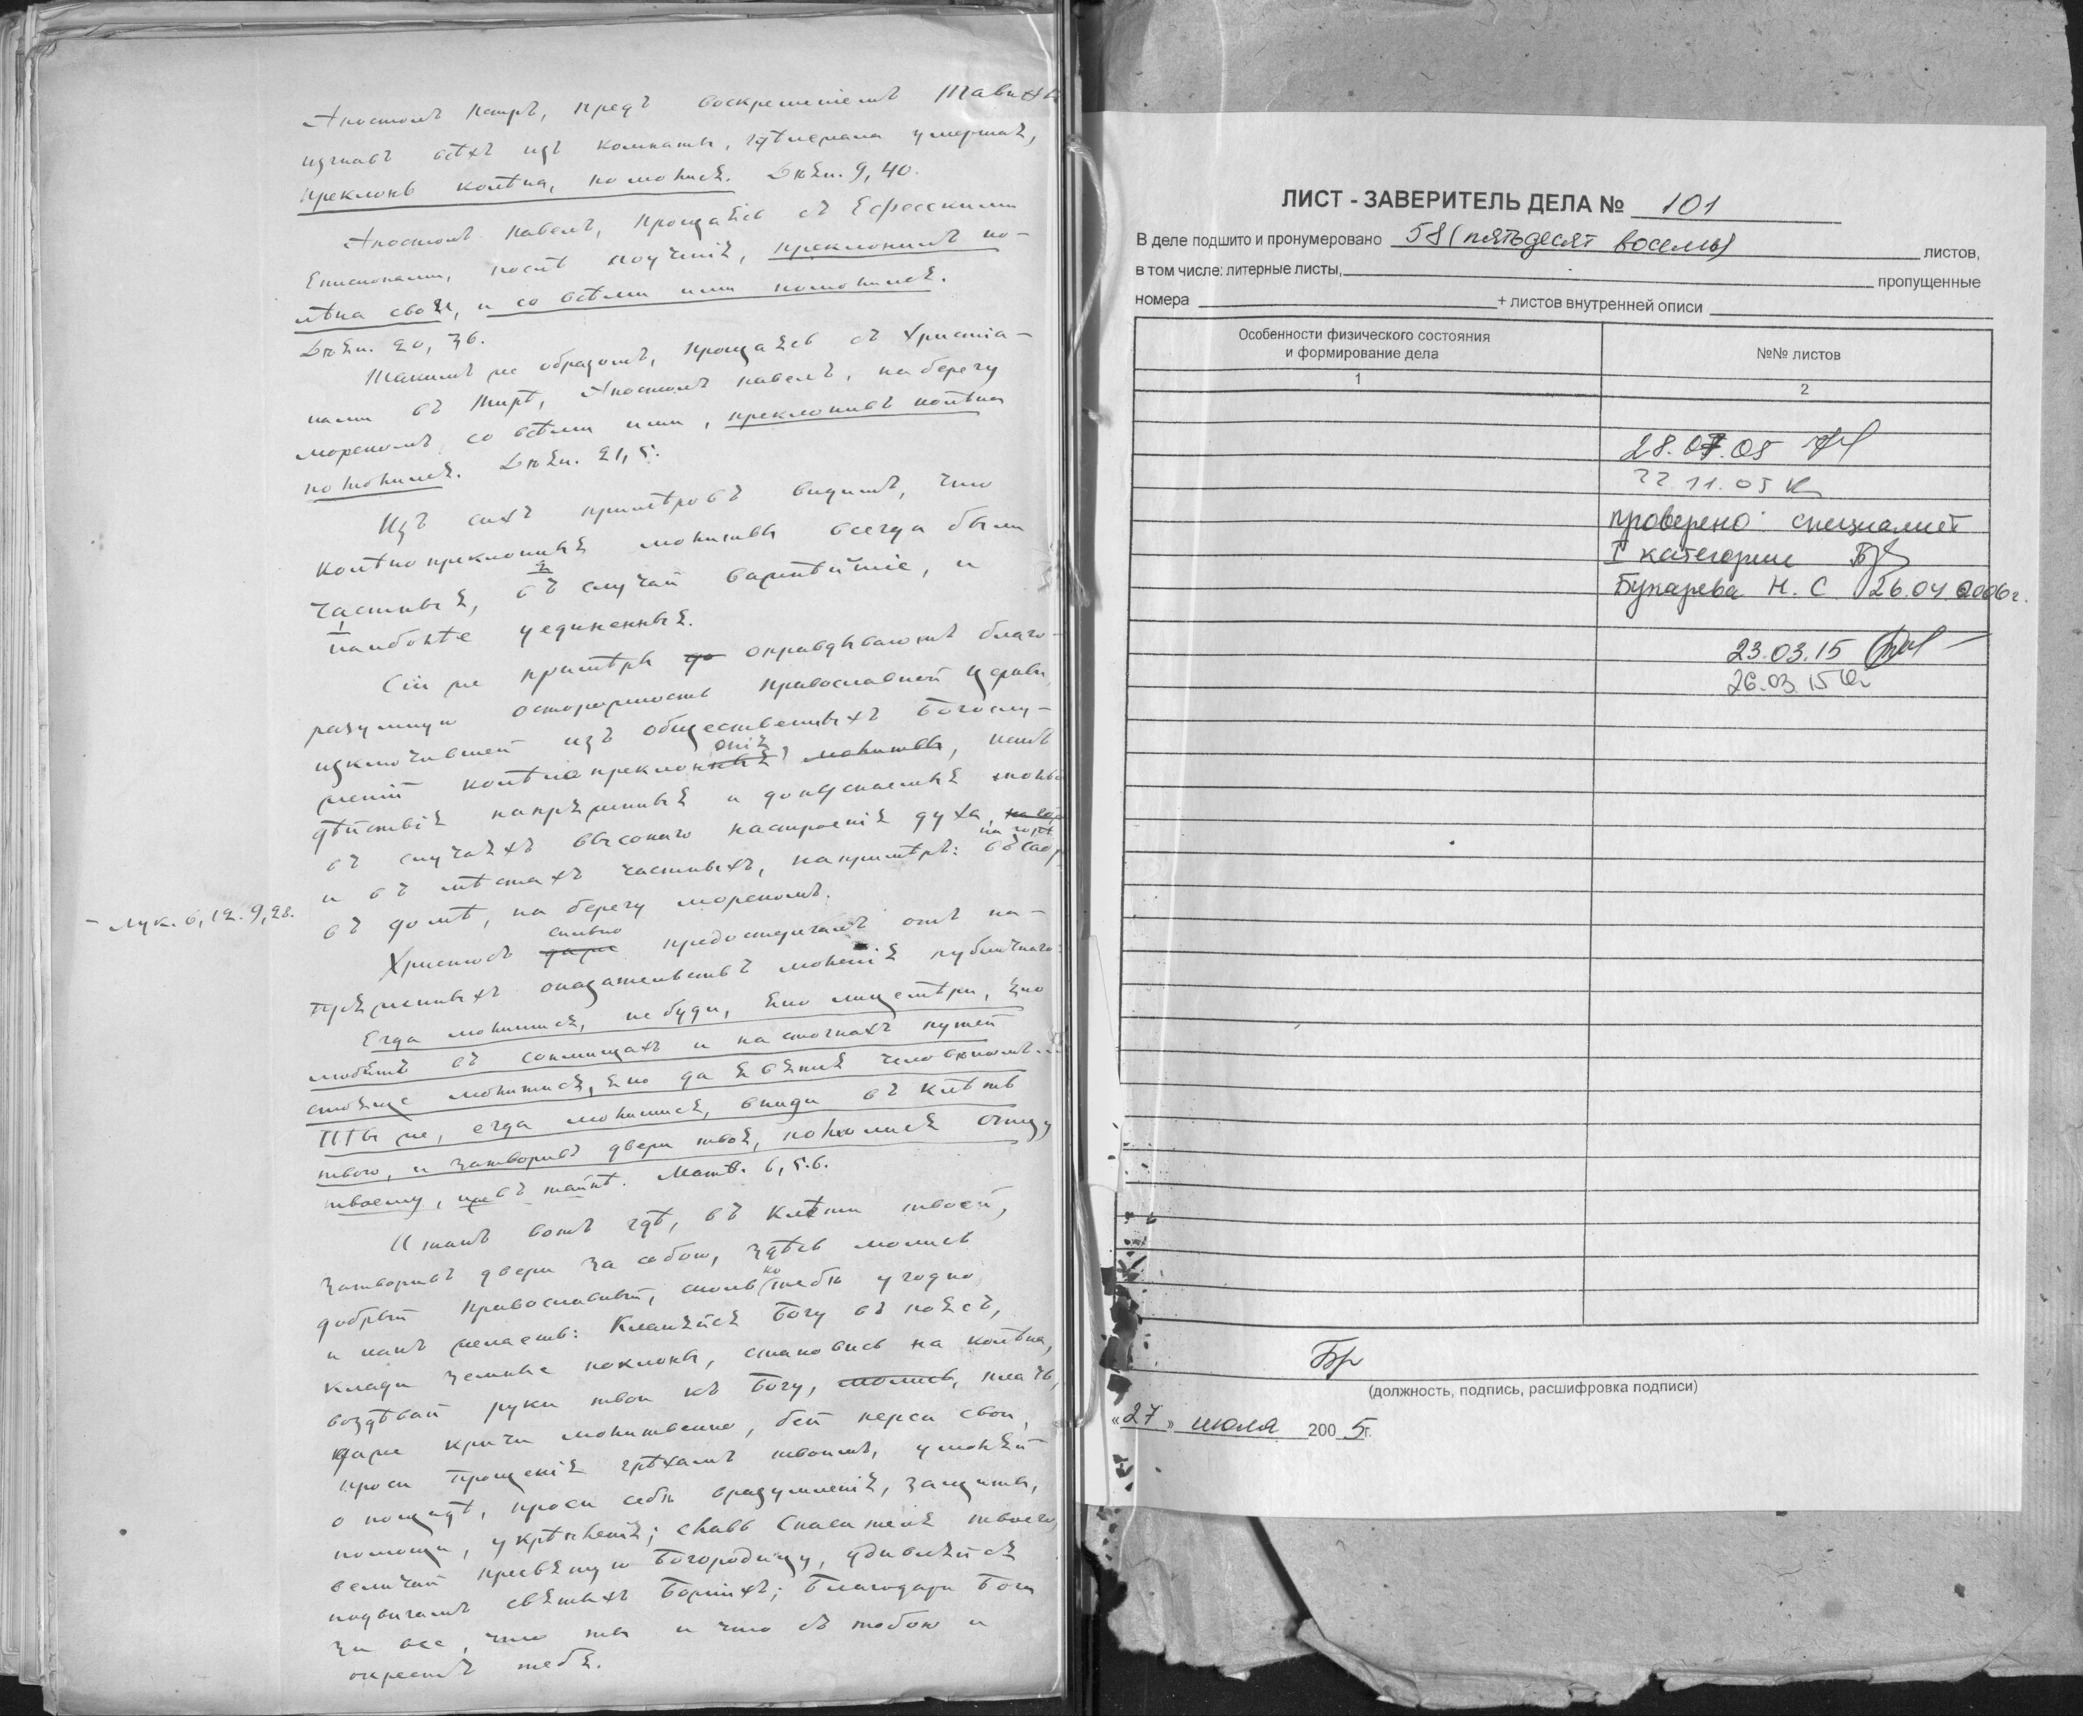 Апостолъ Петръ, предъ воскрешеніемъ Тавиѳы
изгнавъ всѣхъ изъ комнаты, гдѣ лежала умершая,
преклонь колѣна, помолися. Дѣян. 9, 40.
Апостолъ Павелъ, прощаясь съ Ефесскими
Епископами, послѣ поученія, преклонилъ ко-
лѣна своя, и со всѣми ими помолился.
Дѣян. 20, 36.
Такимъ же образомъ, прощаясь съ Христіа-
нами въ Тирѣ, Апостолъ Павелъ, на берегу
морскомъ, со всѣми ими, преклонивъ колѣна
помолился. Дѣян. 21, 5.
Изъ сихъ примѣровъ видимъ, что
колѣнопреклонныя молитвы всегда были
частныя, въ случаи важнѣйшіе, и
наиболѣе уединенныя.
Сіи же примѣры оправдываютъ благо-
разумную осторожность Православной Церкви,
изключившей изъ общественныхъ Богослу-
женій колѣнопреклоненія молитвы, какъ
дѣйствія напряженныя и допускаемыя только
въ случаяхъ высокаго настроенія духа,
и въ мѣстахъ частныхъ, напримѣръ: въ саду
на горѣ
- Лук. 6, 12. 9, 28.
въ домѣ, на берегу морскомъ.
Христосъ сильно предостерегалъ отъ на-
пряженныхъ оказательствъ моленія публичнаго:
Егда молишися, не буди, яко лицемѣри, яко
любятъ въ сонмищахъ и на стогнахъ путей
стояще молитися, яко да явятся человѣкомъ...
Ты же, егда молишися, вниди въ клѣть
твою, и затворивъ двери твоя, помолися Отцу
твоему, иже въ тайнѣ. Матѳ. 6, 5. 6.
И такъ вотъ гдѣ, въ клѣти твоей,
затворивъ двери за собою, здѣсь молись
добрый православный, сколько тебѣ угодно
и какъ желаешь: Кланяйся Богу въ поясъ,
клади земные поклоны, становись на колѣна,
воздѣвай руки твои къ Богу, молись, плачь,
даже кричи молитвенно, бей перси свои,
проси прощенія грѣхамъ твоимъ, умоляй
о пощадѣ, проси себѣ вразумленія, защиты,
помощи, укрѣпленія; славь Спасителя твоего,
величай пресвятую Богородицу, удивляйся
подвигамъ святыхъ Божіихъ; благодари Бога
за все, что ты и что съ тобою и
окрестъ тебя.
ЛИСТ - ЗАВЕРИТЕЛЬ ДЕЛА № 101
В деле подшито и пронумеровано 58 (пятьдесят восемь) листов,
в том числе: литерные листы, пропущенные
номера + листов внутренней описи
Особенности физического состояния
и формирование дела
№№ листов
1
2
28.07.05
22.11.05
проверено специалист
I категории
Бухарева Н. С. 26.04.2006г.
23.03.15
26.03.15
(должность, подпись, расшифровка подписи)
«27» июля 2005г.